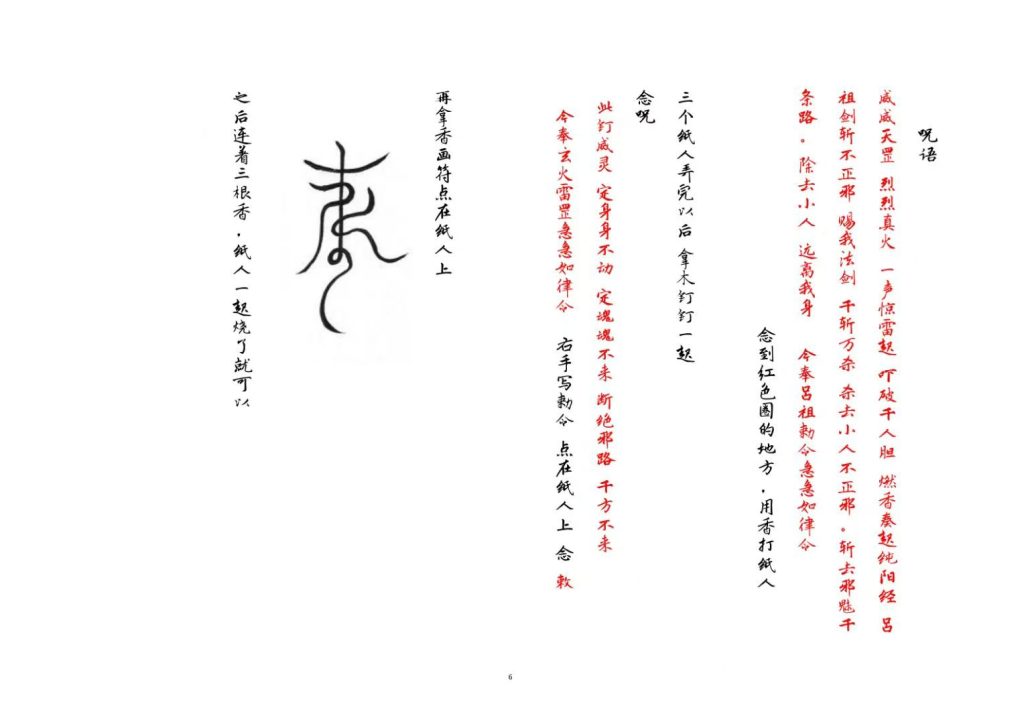 呪语
威威天罡 烈烈真火 一声惊雷起 吓破千人胆 燃香奏起纯阳经 吕
祖剑斩不正邪 赐我法剑 千斩万杀 杀去小人不正邪。斩去邪魅千
条路。除去小人 远离我身 今奉吕祖勅令急急如律令
念到红色圈的地方，用香打纸人
三个纸人弄完以后 拿木钉钉一起
念呪
此钉威灵 定身身不动 定魂魂不来 断绝邪路 千方不来
今奉玄火雷罡急急如律令 右手写勅令 点在纸人上 念 敕
再拿香画符点在纸人上
之后连着三根香，纸人一起烧了就可以
6